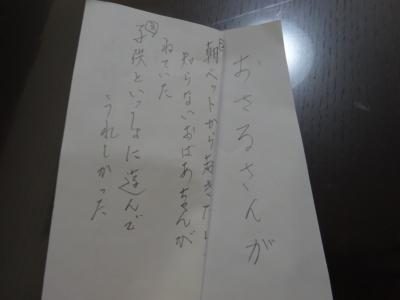 おさるさんが
②朝ベットから起きたら
知らないおばあちゃんが
ねていた
③子供といっしょに遊んで
うれしかった